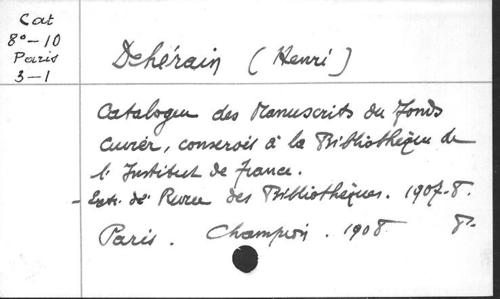 Cat
8º-10
Paris
3-1
Dehérain (Henri)
Catalogue des Manuscrits du fonds
Cuvier, conservés à la Bibliothèque de
l'Institut de france.
- Extr. de Revue des Bibliothèques. 1907-8.
Paris. Champion. 1908 8º.